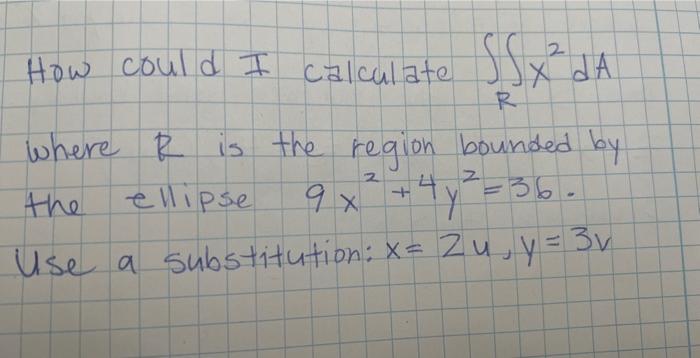 How could I calculate ∬_R x² dA
where R is the region bounded by
the ellipse 9x² + 4y² = 36.
Use a substitution: x = 2u, y = 3v